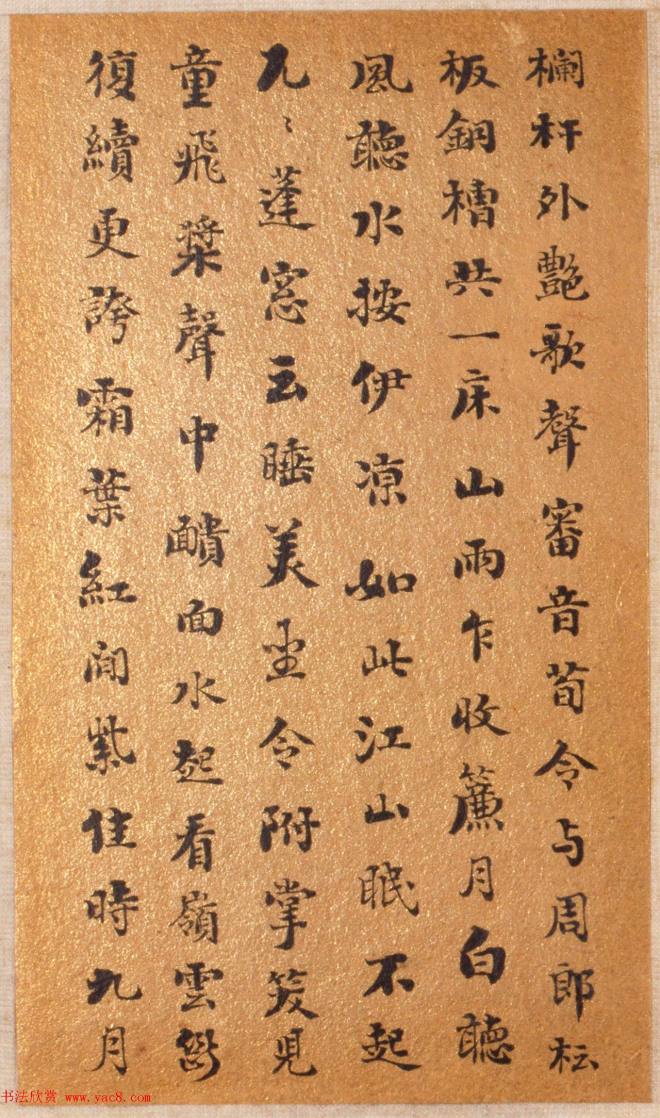 欄杆外艷歌聲審音荀令与周郎枟
板銅槽共一床山雨乍收簾月白聽
風聽水按伊凉如此江山眠不起
兀〻蓬窓云睡美坐令附掌笑見
童飛槳聲中靧面水起看嶺雲斷
復續更誇霜葉紅間紫住時九月
书法欣赏 www.yac8.com